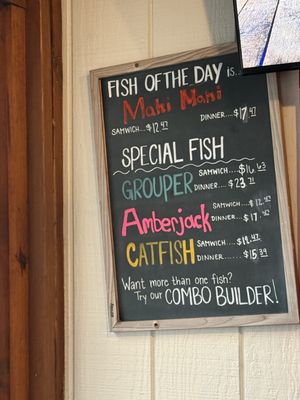 FISH OF THE DAY is...
Mahi Mahi
SAMWICH...$12.47 DINNER...$17.47
SPECIAL FISH
GROUPER SAMWICH....$16.63
DINNER....$23.71
Amberjack SAMWICH...$12.47
DINNER...$17.47
CATFISH SAMWICH....
DINNER......$15.39
Want more than one fish?
Try our COMBO BUILDER!